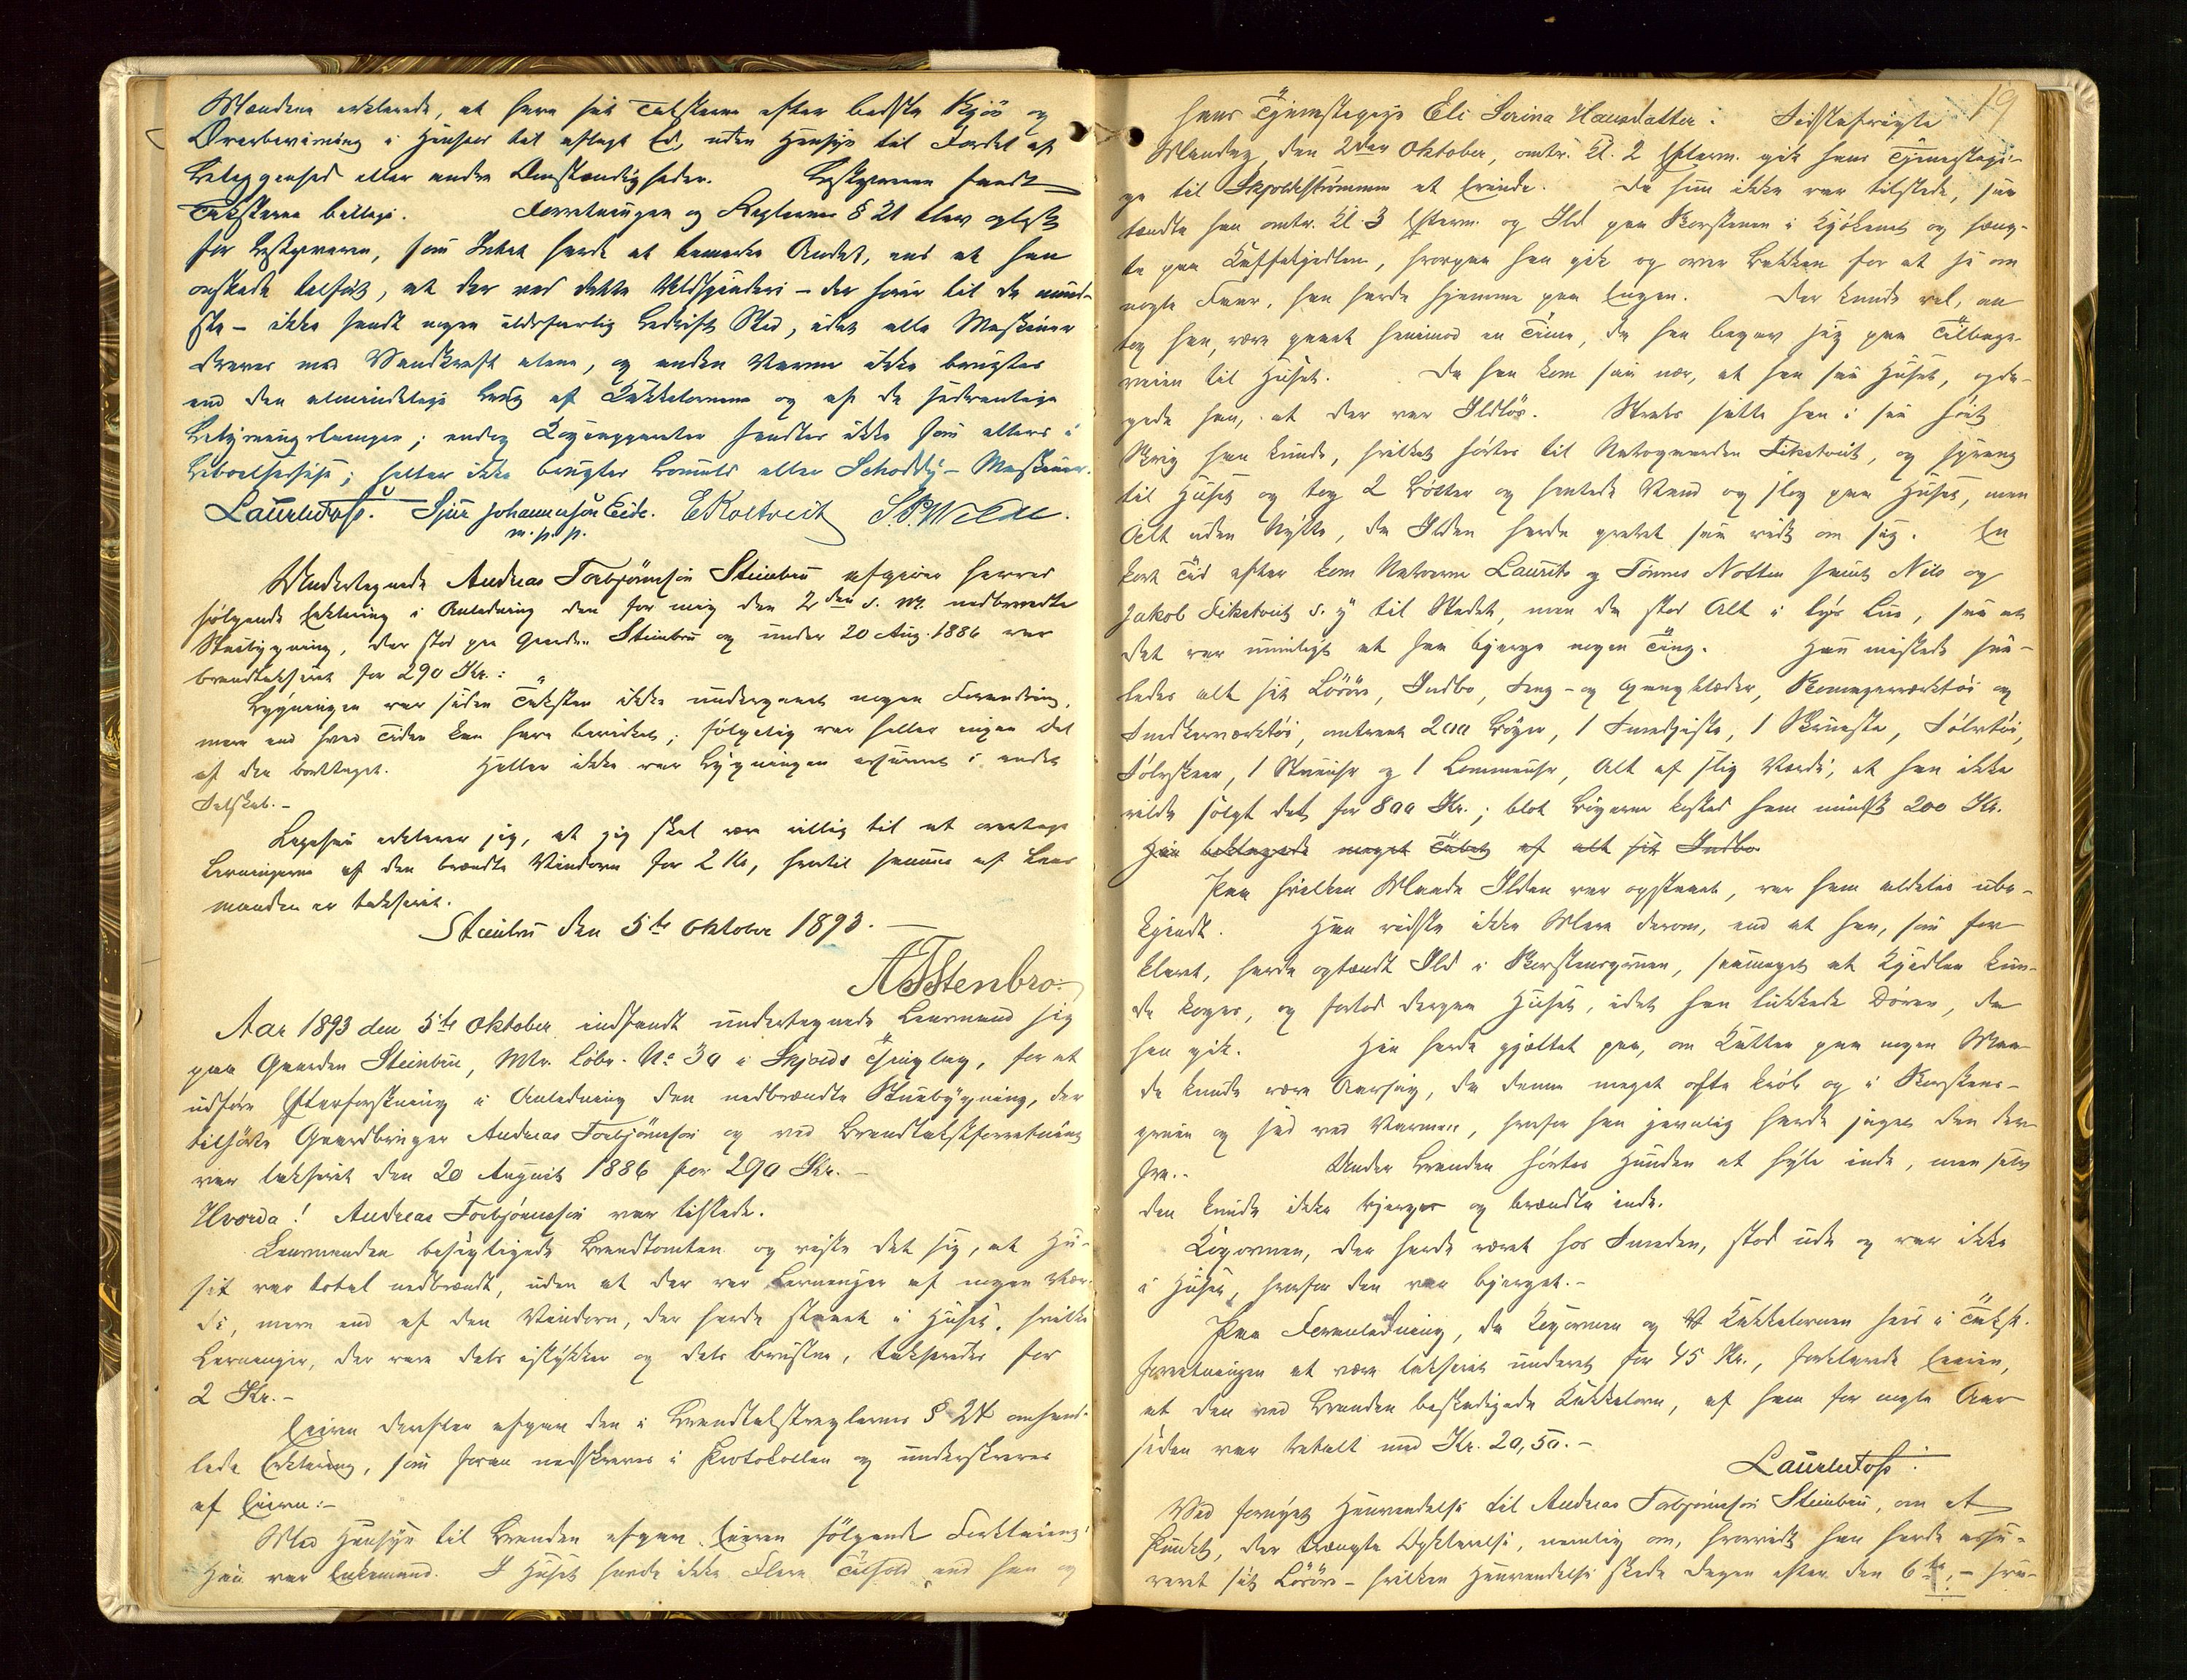 Mændene erklærede, at have sat Taksterne efter bedste Skjøn og
Overbevisning i Henhold til aflagt Ed, uden Hensyn til Fordel af
Beliggenhed eller andre Omstændigheder. Bestyreren fandt
Taksterne billige. Forretningen og Reglernes § 21 blev oplæst
for Bestyreren, som Intet havde at bemærke Andet, end at han
ønskede tilført, at der ved dette Uldspinderi – der hører til de mind-
ste – ikke fandt nogen ildsfarlig Bedrift Sted, idet alle Maskiner
dreves med Vandkraft alene, og anden Varme ikke brugtes
end den almindelige Brug af Kakkelovnene og af de sædvanlige
Belysningslamper; andre Kogeapparater fandtes ikke som ellers i
Beboelseshuse; heller ikke brugtes Bomulds eller Schoddy-Maskiner.
Sjur Johannesson Eide. E Roltveit
m. p. p.
Undertegnede Andreas Torbjørnsøn Steinbru afgiver herved
følgende Erklæring i Anledning den for mig den 2den d. M. nedbrændte
Stuebygning, der stod paa Gaarden Steinbru og under 20 Aug. 1886 var
brandtakseret for 290 Kr.:
Bygningen var siden Taksten ikke undergaaet nogen Forandring,
mere end hvad Tiden kan have bevirket; følgelig var heller ingen Del
af den borttaget. Heller ikke var Bygningen assureret i andet
Selskab. –
Ligesaa erklærer jeg, at jeg skal være villig til at overtage
Levningerne af den brændte Vindovn for 2 Kr, hvortil samme af Lens
manden er takseret.
Steinbru den 5te Oktober 1893. –
ATStenbro.
Aar 1893 den 5te Oktober indfandt undertegnede Lensmand sig
paa Gaarden Steinbru, Mtr. Løbe-No 30 i Skjolds Thinglag, for at
udføre Efterforskning i Anledning den nedbrændte Stuebygning, der
tilhørte Gaardbruger Andreas Torbjørnsøn og ved Brandtakstforretning
var takseret den 20 August 1886 for 290 Kr. –
Hvorda! Andreas Torbjørnsøn var tilstede.
Lensmanden besigtigede Brandtomten og viste det sig, at Hu-
set var total nedbrændt, uden at der var Levninger af nogen Vær-
di, mere end af den Vindovn, der havde staaet i Huset, hvilke
Levninger, der vare dels istykker og dels brustne, takseredes for
2 Kr. –
Eieren derefter afgav den i Brandtakstreglernes § 24 omhand-
lede Erklæring, som foran nedskreves i Protokollen og underskreves
af Eieren: –
Med Hensyn til Branden afgav Eieren følgende Forklaring:
Han var Enkemand. I Huset havde ikke Flere Tilhold end han og
19
hans Tjenestepige Eli Serina Hansdatter. Sidstafvigte
Mandag den 2den Oktober, omtr. Kl. 2 Efterm. gik hans Tjenestepi-
ge til Skjoldestrømmen et Erinde. Da hun ikke var tilstede, saa
tændte han omtr. Kl. 3 Efterm. og Ild paa Skorstenen i Kjøkenet og hæng-
te paa Kaffekjedlen, hvorpaa han gik og over Bakken for at se om
nogle Faar, han havde hjemme paa Engen. Der kunde vel, an
tog han, være gaaet henimod en Time, da han begav sig paa Tilbage-
veien til Huset. Da han kom saa nær, at han saa Huset, opda-
gede han, at der var Ildløs. Straks satte han i saa høit
Skrig han kunde, hvilket hørtes til Nabogaarden Fiketveit, og sprang
til Huset og tog 2 Bøtter og hentede Vand og slog paa Huset, men
Alt uden Nytte, da Ilden havde grebet saa vidt om sig. En
kort Tid efter kom Naboerne Laurits og Tønnes Notten samt Nils og
Jakob Fiketveit d. y til Stedet, men da stod Alt i lys Lue, saa at
det var umuligt at faa bjerge nogen Ting. Han mistede saa-
ledes alt sit Løsøre, Indbo, Seng- og Gangklæder, Skomagerværktøi og
Snedkerværktøi, omtrent 200 Bøger, 1 Smedjeiste, 1 , Sølvtøi,
Sølvskeer, 1 Stueuhr og 1 Lommeuhr, Alt af slig Værdi, at han ikke
vilde solgt det for 800 Kr.; blot Bøgerne kostet ham mindst 200 Kr.
Han beklagede meget Tabet af alt sit Indbo.
Paa hvilken Maade Ilden var opstaaet, var ham aldeles ube-
kjendt. Han vidste ikke Mere derom, end at han, som for
klaret, havde optændt Ild i Skorstensgruen, saameget at Kjedlen kun-
de koges, og forlod dernæst Huset, idet han lukkede Døren, da
han gik. Han havde gjættet paa, om Katten paa nogen Maa-
de kunde være Aarsag, da denne meget ofte krøb og i Skorstens-
gruen og sad ved Varmen, hvorfor han jevnlig havde jaget den der-
fra. – Under Branden hørtes Hunden at hyle inde, men selv
den kunde ikke bjerges og brændte inde.
Kogeovnen, der havde været hos Smeden, stod ude og var ikke
i Huset, hvorfor den var bjerget. –
Paa Foranledning, da Kogeovnen og Kakkelovnen sees i Takst-
forretningen at være takseret underet for 45 Kr., forklarede Eieren,
at den ved Branden beskadigede Kakkelovn, af ham for nogle Aar
siden var betalt med Kr. 20,50. –
Ved fornyet Henvendelse til Andreas Torbjørnsøn Steinbru, om et
Punkt, der trængte Opklarelse, nemlig om, hvorvidt han havde assu-
reret sit Løsøre – hvilken Henvendelse skede Dagen efter den 6te, – sva-